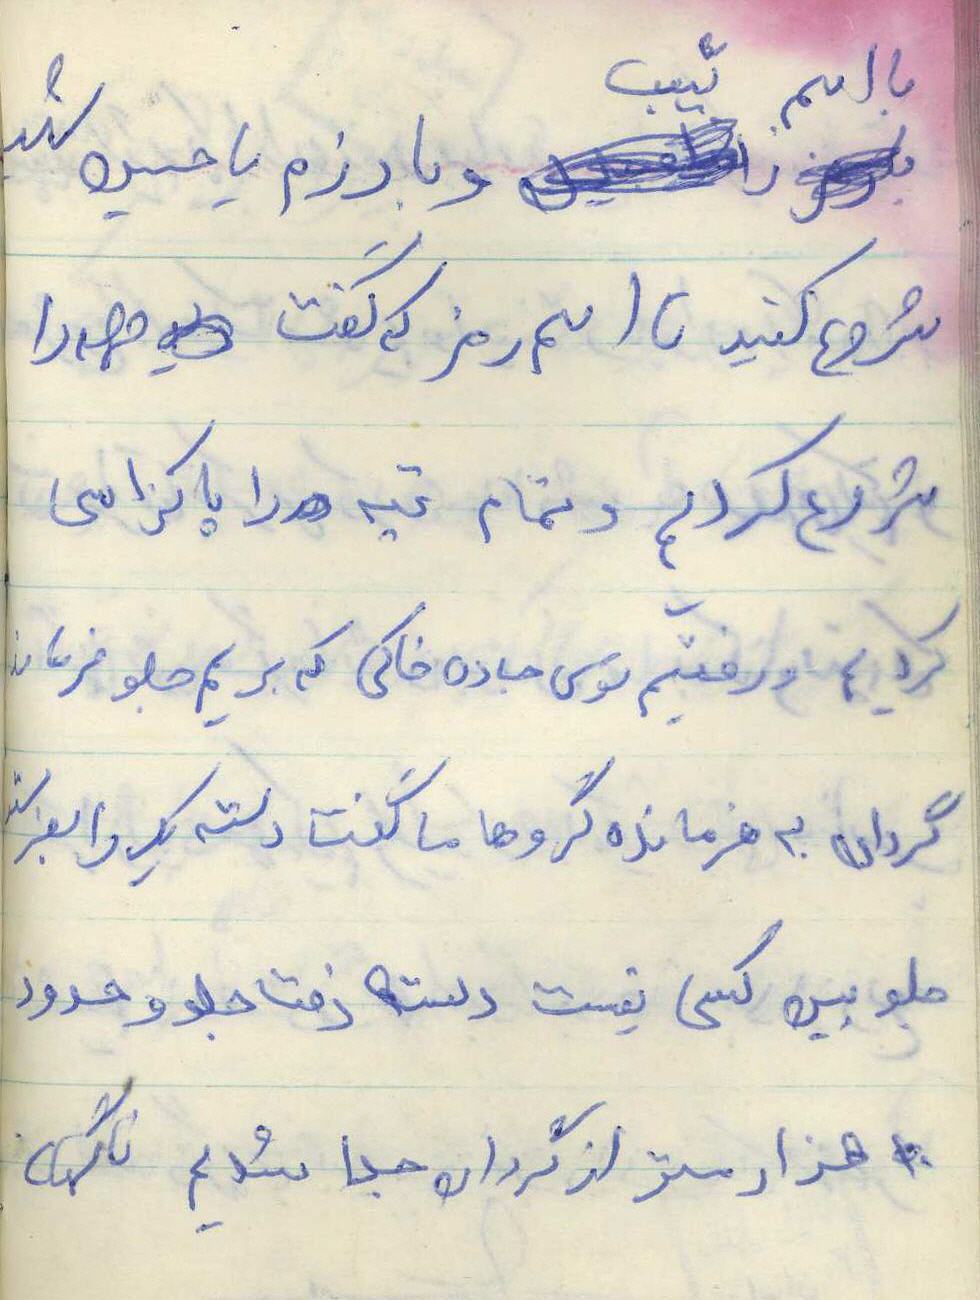 با اسم تیپ
و با رزم یا حسین
شروع کنید تا اسم رمز که گفت را
شروع کردیم و تمام تپه ها را پاکزاسی
کردیم و رفتیم توی جاده خاکی که بریم جلو فرمانده
گردان به فرمانده گروها ما گفت دسته یک را بفرست
جلو ببین کسی نیست دسته رفت جلو و حدود
هزار متر از گردان جدا شدیم ناگهان